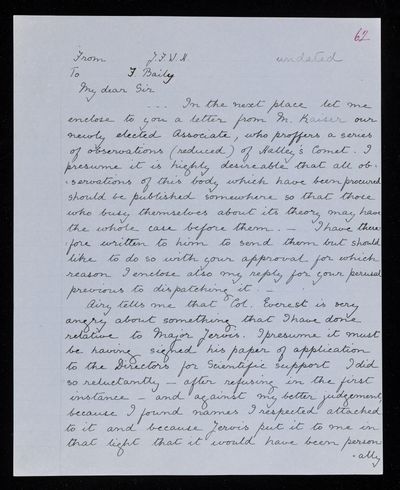 62
From J.F.W.H. undated
To F. Baily
My dear Sir
... In the next place let me
enclose to you a letter from M. Kaiser our
newly elected Associate, who proffers a series
of observations (reduced) of Halley's Comet. I
presume it is highly desireable that all ob-
-servations of this body which have been procured
should be published somewhere so that those
who busy themselves about its theory may have
the whole case before them. — I have there
fore written to him to send them but should
like to do so with your approval for which
reason I enclose also my reply for your perusal
previous to dispatching it. —
Airy tells me that Col. Everest is very
angry about something that I have done
relative to Major Jervis. I presume it must
be having signed his paper of application
to the Directors for Scientific support I did
so reluctantly — after refusing in the first
instance — and against my better judgement,
because I found names I respected attached
to it and because Jervis put it to me in
that light that it would have been person
-ally